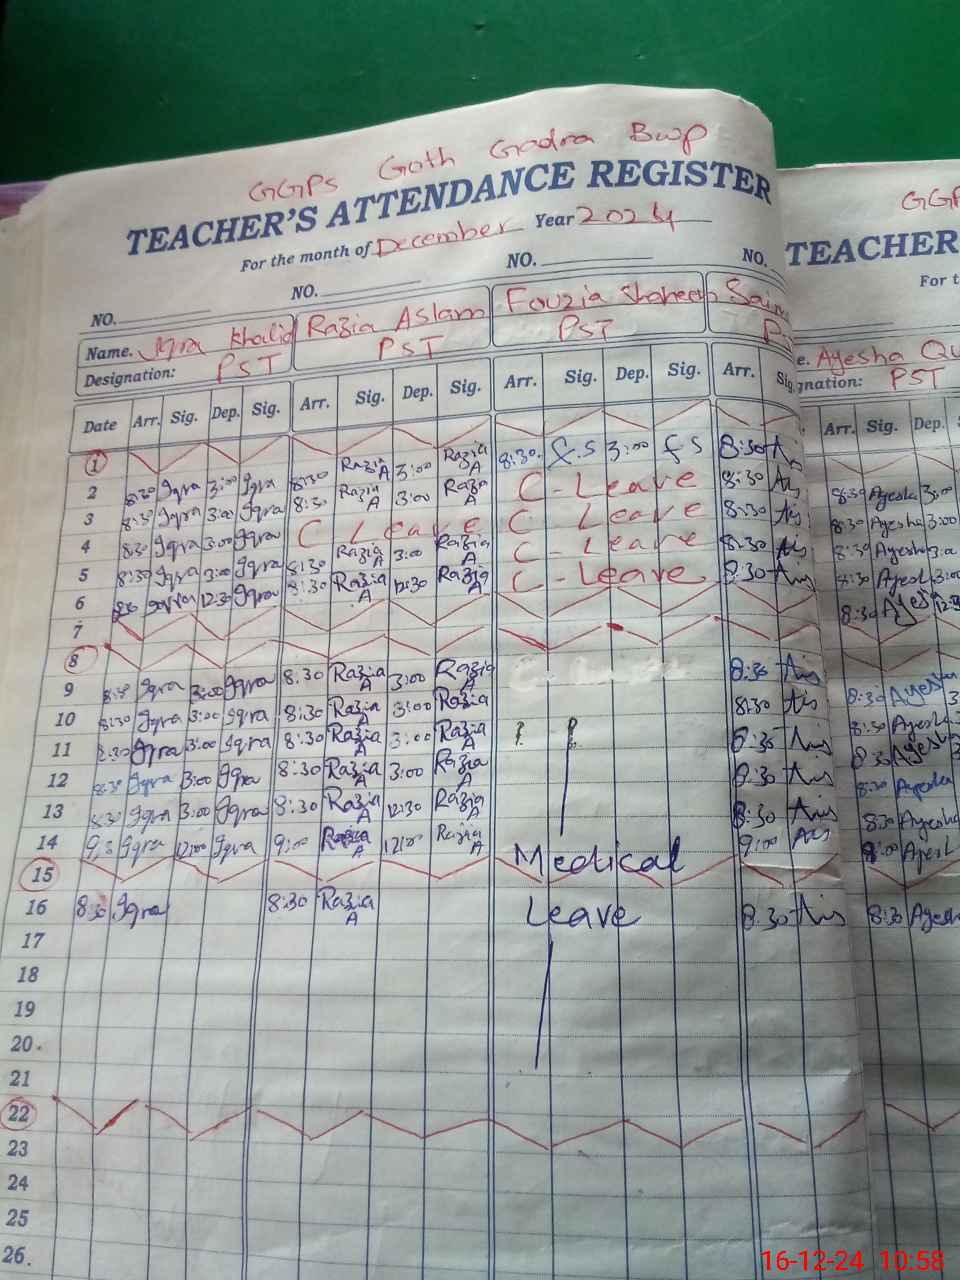 GGPS Goth Gadra Bwp
TEACHER'S ATTENDANCE REGISTER
For the month of December Year 2024
NO. NO. NO. NO.
Name. Iqra Khalid Razia Aslam Fouzia Shaheen
Designation: PST PST PST
Date Arr. Sig. Dep. Sig. Arr. Sig. Dep. Sig. Arr. Sig. Dep. Sig. Arr. Sig.
1
2 8:30 Iqra 3:00 Iqra 8:30 Razia A 3:00 Razia A 8:30 F.S 3:00 F S 8:30
3 8:30 Iqra 3:00 Iqra 8:30 Razia A 3:00 Razia A C-Leave 8:30
4 8:30 Iqra 3:00 Iqra C Leave C Leave 8:30
5 8:30 Iqra 3:00 Iqra 8:30 Razia A 3:00 Razia A C-Leave 8:30
6 Iqra 12:30 Iqra 8:30 Razia A 12:30 Razia A C-Leave 8:30
7
8
9 8:30 Iqra 3:00 Iqra 8:30 Razia A 3:00 Razia 8:30
10 8:30 Iqra 3:00 Iqra 8:30 Razia A 3:00 Razia A 8:30
11 8:30 Iqra 3:00 Iqra 8:30 Razia A 3:00 Razia A 8:30
12 8:30 Iqra 3:00 Iqra 8:30 Razia A 3:00 Razia A 8:30
13 8:30 Iqra 3:00 Iqra 8:30 Razia A 12:30 Razia A 8:30
14 Iqra 12:00 Iqra 9:00 Razia A 12:00 Razia A Medical 9:00
15
16 8:30 Iqra 8:30 Razia A Leave 8:30
17
18
19
20
21
22
23
24
25
26
TEACHER
Ayesha
PST
Arr. Sig. Dep.
8:30 Ayesha 3:00
8:30 Ayesha 3:00
8:30 Ayesha 3:00
8:30 Ayesha 3:00
8:30 Ayesha
8:30 Ayesha
8:30 Ayesha
8:30 Ayesha
8:30 Ayesha
8:30 Ayesha
Ayesha
8:30 Ayesha
16-12-24 10:58